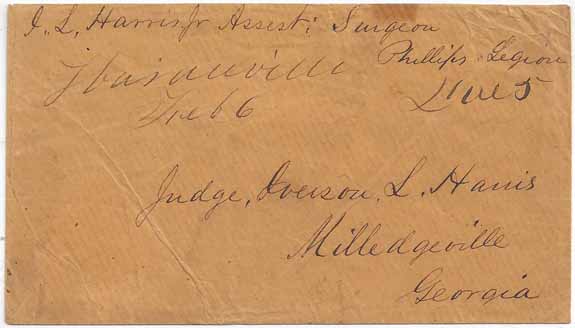 I. L. Harris Jr Assest: Surgeon
Phillips Legion
Due 5
Feb 6
Judge, Iverson, L. Harris
Milledgeville
Georgia